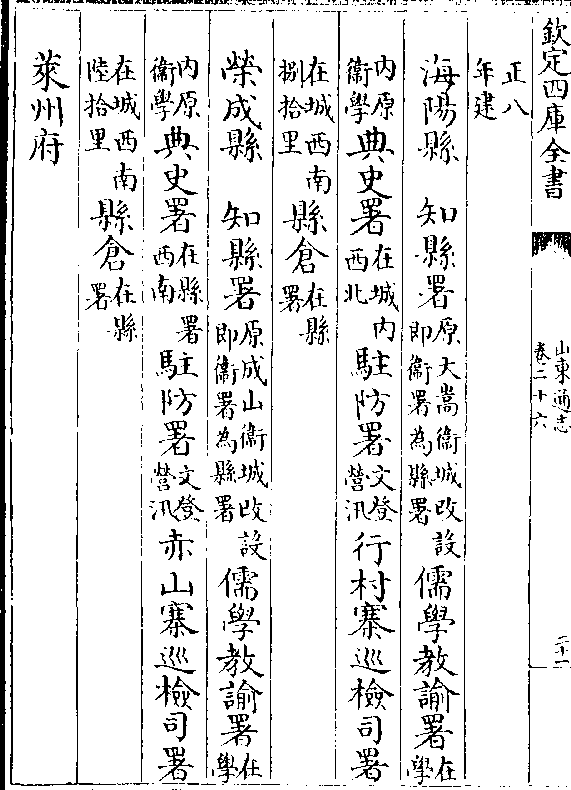 欽定四庫全書 山東通志 卷二十六 二十一
正八年建
海陽縣 知縣署原大嵩衛城改設即衛署為縣署儒學教諭署在學
内原衛學典史署在城内西北駐防署文登營汛行村寨巡檢司署
在城西南捌拾里縣倉在縣署
榮成縣 知縣署原成山衛城改設即衛署為縣署儒學教諭署在學
内原衛學典史署在縣署西南駐防署文登營汛赤山寨巡檢司署
在城西南陸拾里縣倉在縣署
萊州府